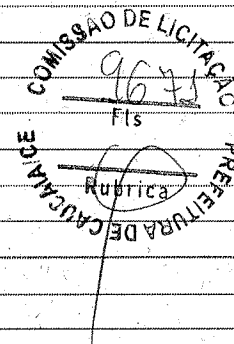 COMISSÃO DE LICITAÇÃO
Fls
Rubrica
PREFEITURA DE CAUCAIA/CE